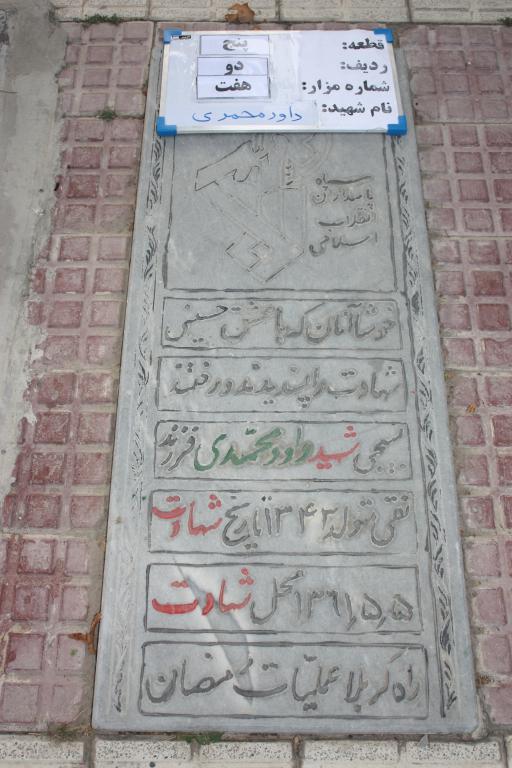 قطعه: پنج
ردیف: دو
شماره مزار: هفت
نام شهید: داود محمدی
سپاه
پاسداران
انقلاب
اسلامی
خوشا آنان که با عشق حسینی
شهادت را پسندیدند و رفتند
بسیجی شهید داود محمدی فرزند
نقی تولد ۱۳۴۲ تاریخ شهادت
۱۳۶۱,۵,۵ محل شهادت
راه کربلا عملیات رمضان